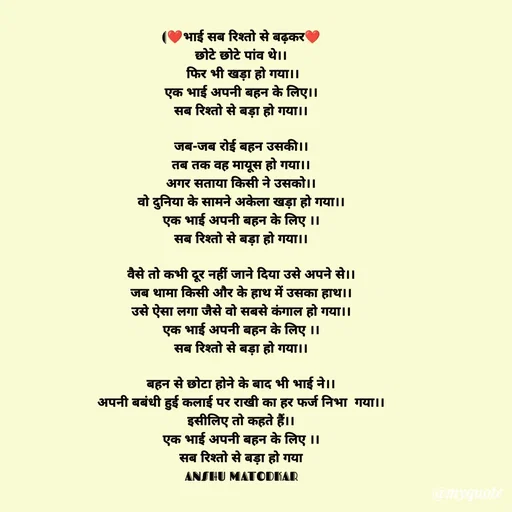 (❤️भाई सब रिश्तो से बढ़कर❤️
छोटे छोटे पांव थे।।
फिर भी खड़ा हो गया।।
एक भाई अपनी बहन के लिए।।
सब रिश्तो से बड़ा हो गया।।

जब-जब रोई बहन उसकी।।
तब तक वह मायूस हो गया।।
अगर सताया किसी ने उसको।।
वो दुनिया के सामने अकेला खड़ा हो गया।।
एक भाई अपनी बहन के लिए ।।
सब रिश्तो से बड़ा हो गया।।

वैसे तो कभी दूर नहीं जाने दिया उसे अपने से।।
जब थामा किसी और के हाथ में उसका हाथ।।
उसे ऐसा लगा जैसे वो सबसे कंगाल हो गया।।
एक भाई अपनी बहन के लिए ।।
सब रिश्तो से बड़ा हो गया।।

बहन से छोटा होने के बाद भी भाई ने।।
अपनी बबंधी हुई कलाई पर राखी का हर फर्ज निभा  गया।।
इसीलिए तो कहते हैं।।
एक भाई अपनी बहन के लिए ।।
सब रिश्तो से बड़ा हो गया
ANSHU MATODKAR